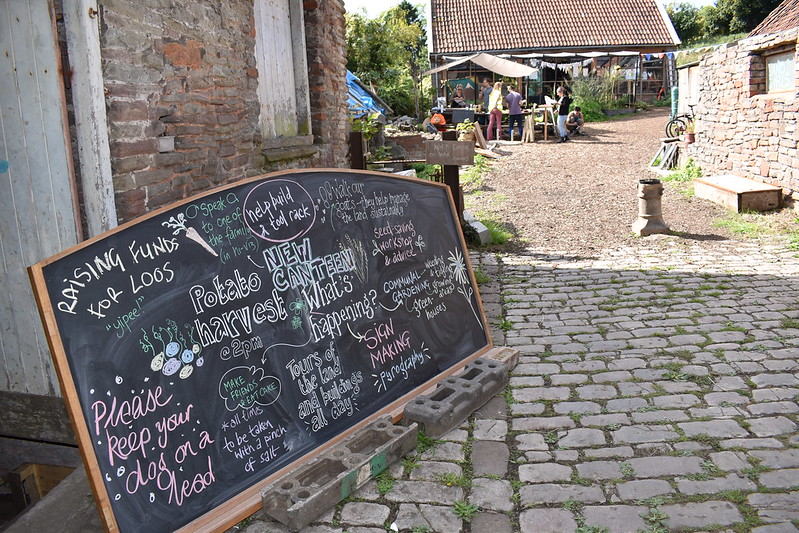 RAISING FUNDS
FOR LOOS
"yipee!"
Speak
to one of
the family
help build
a tool rack
walk our
goats - they help manage
the land sustainably
seed-saving
workshop
& advice
NEW
CANTEEN
Potato
harvest
@ 2pm
What's
happening?
COMMUNAL
GARDENING
weeding
& tidying
growing
areas &
green-
houses
SIGN
MAKING
Pyrography
Tours of
the land
and buildings
all day
MAKE
FRIENDS
& EAT CAKE
*all times
to be taken
with a pinch
of salt
Please
keep your
dog on a
lead